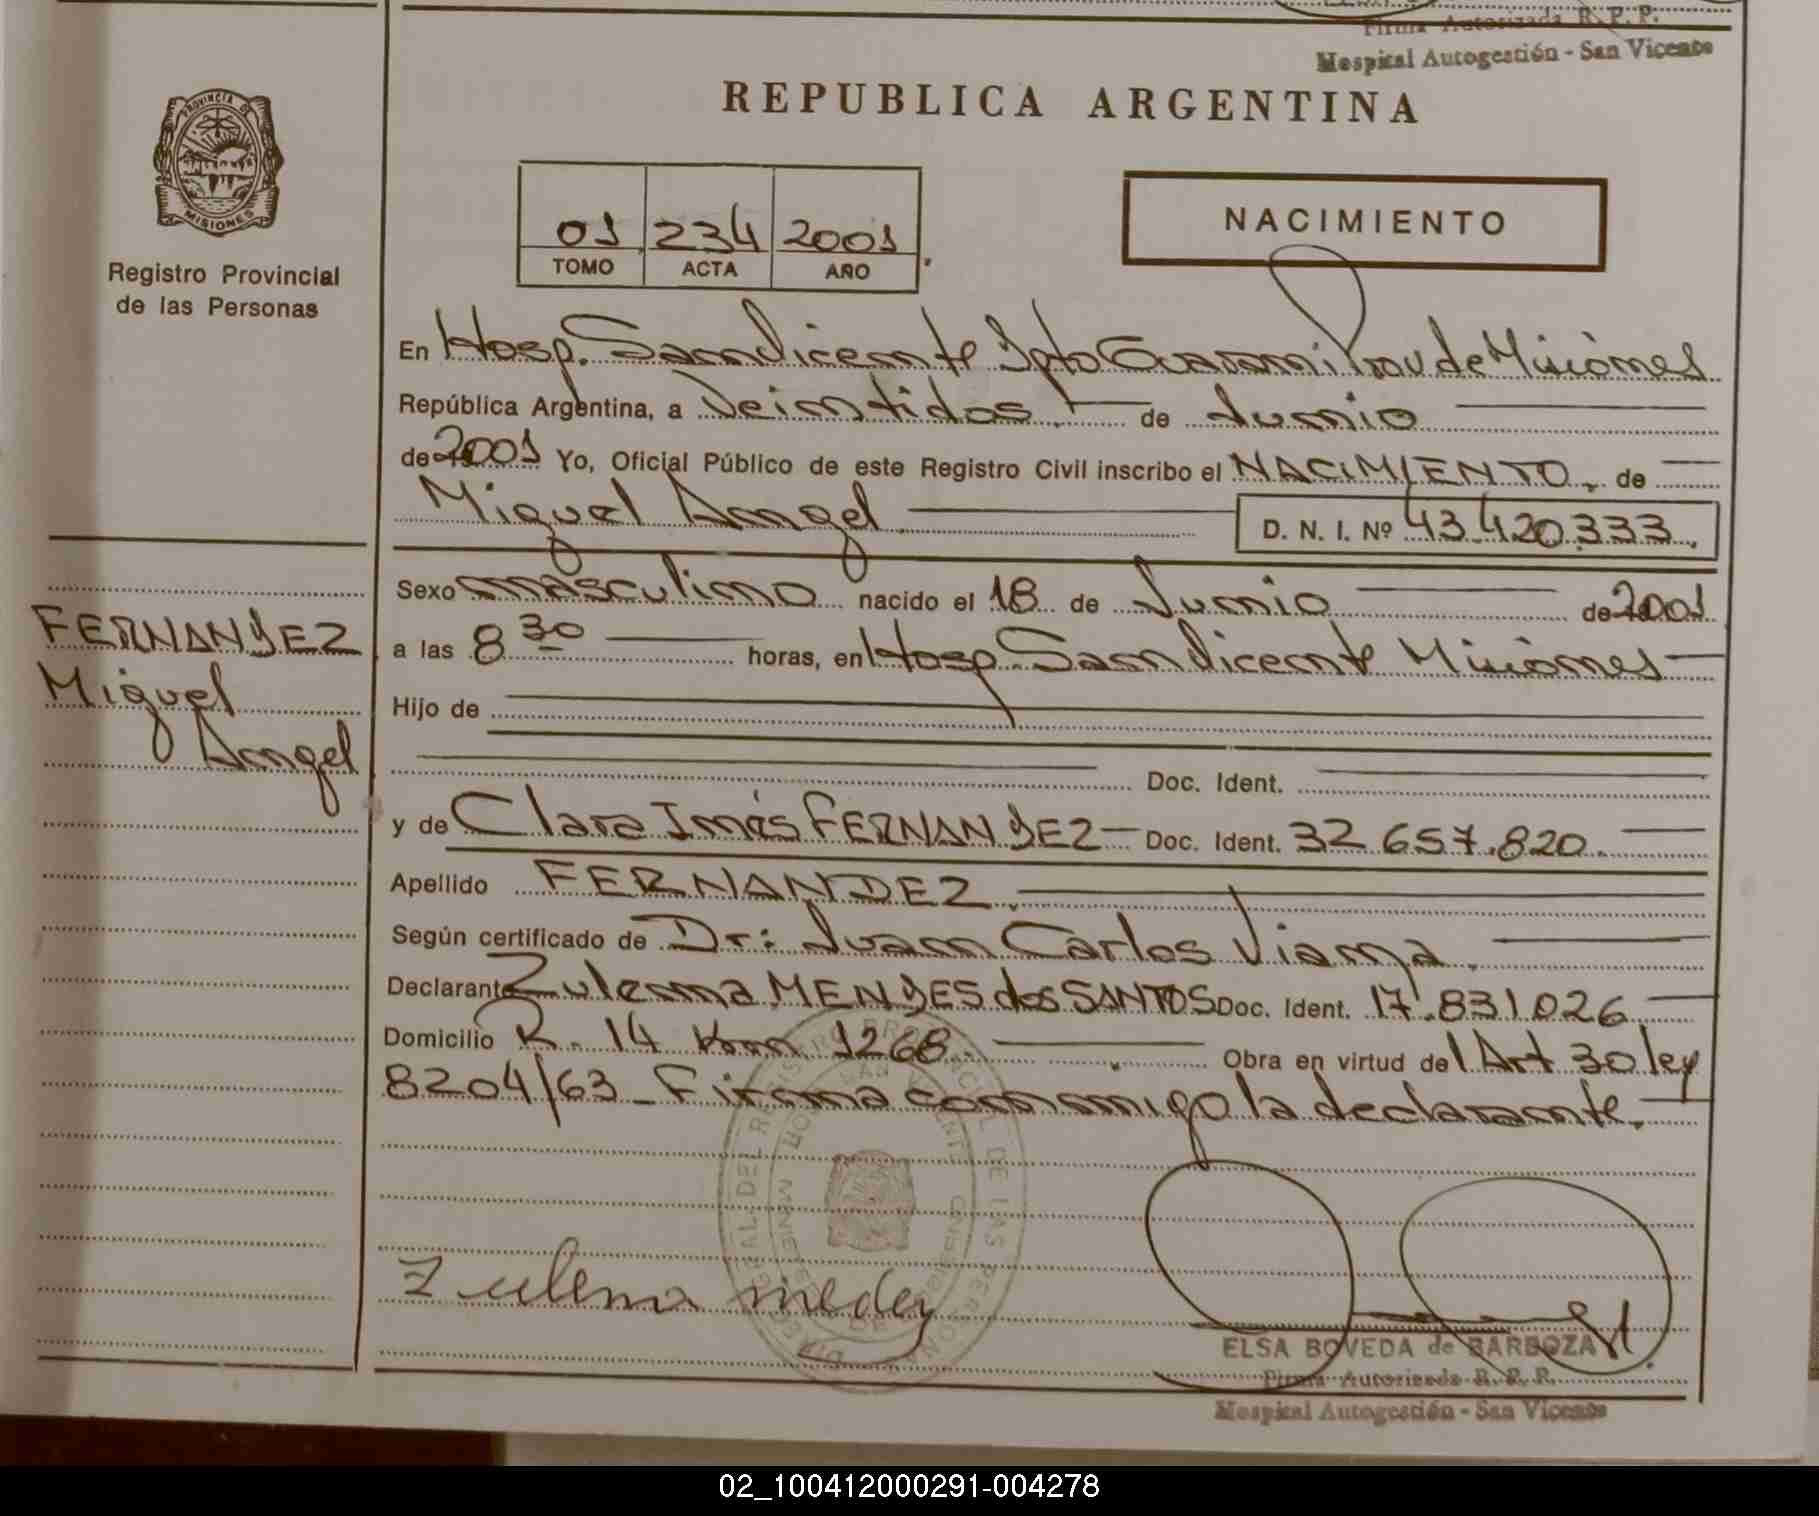 Firma Autorizada R. P. P.
Hospital Autogestión - San Vicente
REPUBLICA ARGENTINA
PROVINCIA DE
MISIONES
Registro Provincial
de las Personas
01 234 2001
TOMO ACTA AÑO
NACIMIENTO
En Hosp. San Vicente Dpto Guarani Prov de Misiones
República Argentina, a Veintidos de Junio
de 2001 Yo, Oficial Público de este Registro Civil inscribo el NACIMIENTO, de
Miguel Angel D. N. I. Nº 43.420.333.
Sexo masculino nacido el 18 de Junio de 2001
a las 8 30 horas, en Hosp. San Vicente Misiones
Hijo de
Doc. Ident.
y de Clara Inés FERNANDEZ Doc. Ident. 32.657.820.
Apellido FERNANDEZ.
Según certificado de Dr: Juan Carlos Viana.
Declarante Zulema MENDES dos SANTOS Doc. Ident. 17.831.026
Domicilio R. 14 Km 1268. Obra en virtud del Art 30 ley
8204/63_ Firma conmigo la declarante.
FERNANDEZ
Miguel
Angel
Zulema
ELSA BOVEDA de BARBOZA
Firma Autorizada R. P. P.
Hospital Autogestión - San Vicente
02_100412000291-004278